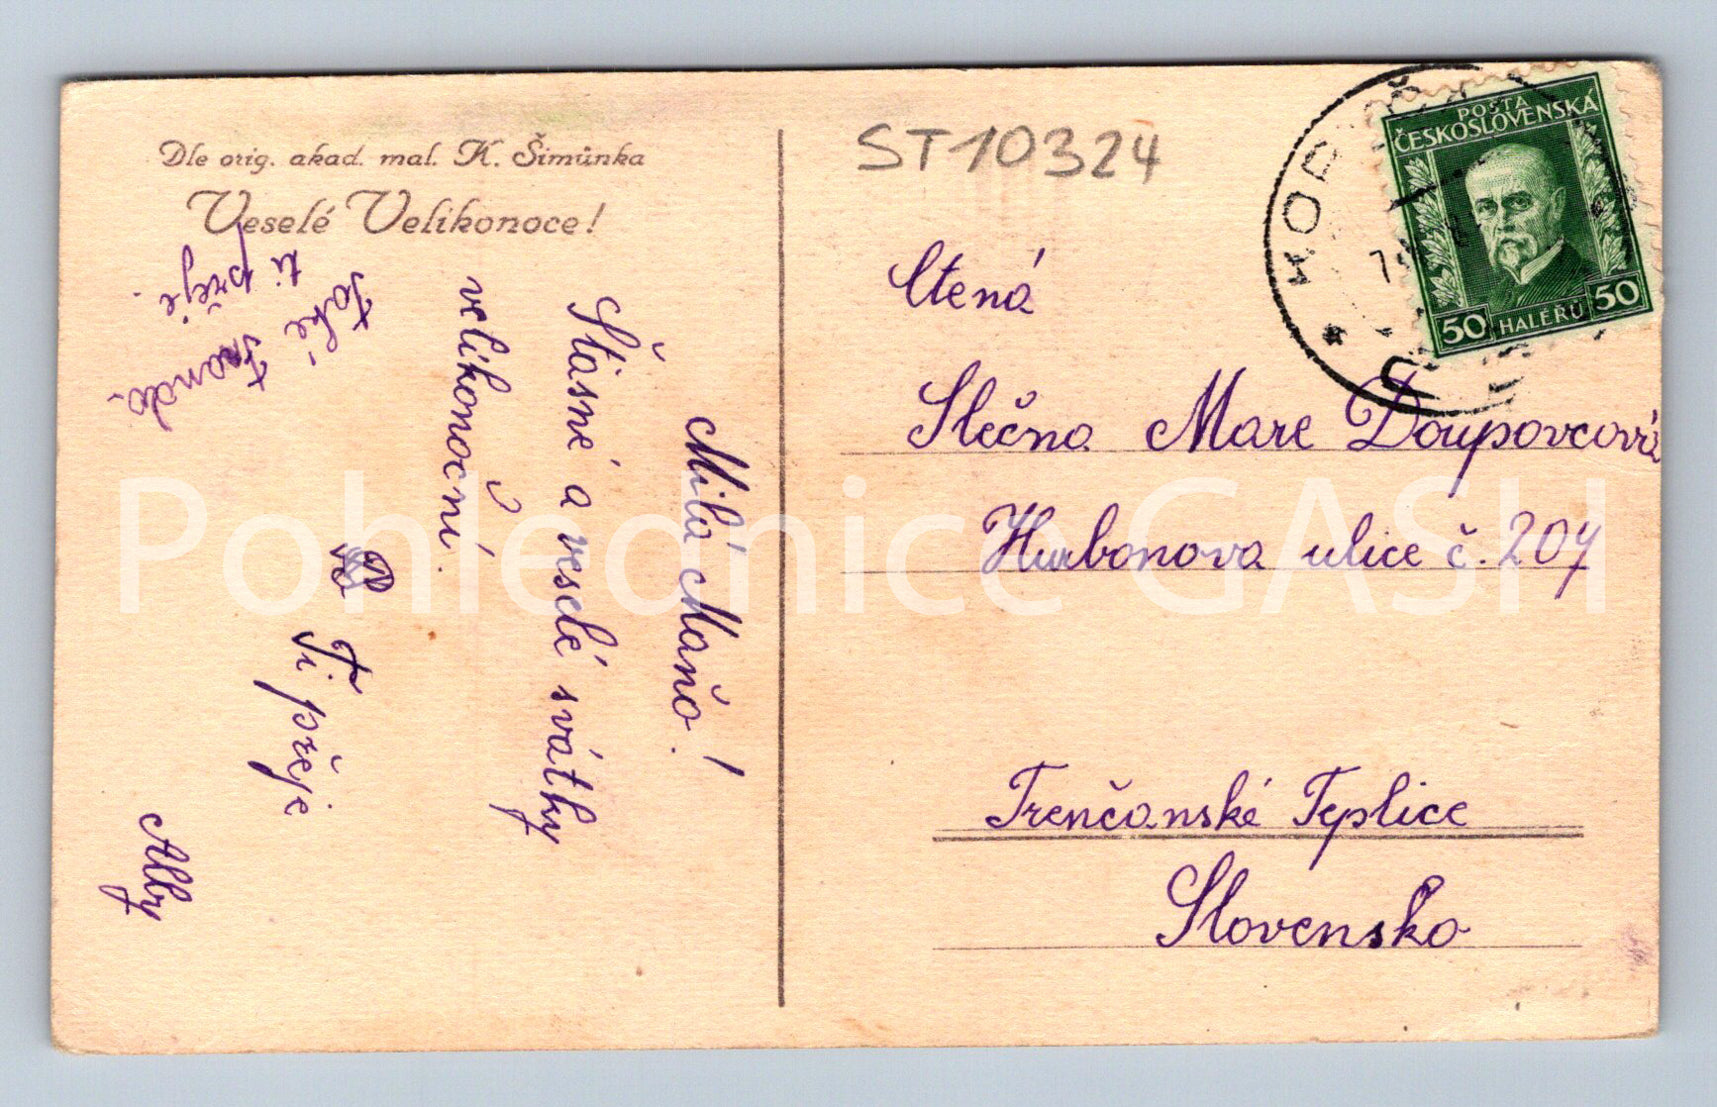 Dle orig. akad. mal. K. Šimůnka
Veselé Velikonoce!
Milá Maňo!
Štasné a veselé svátky
velikonoční.
Ti přeje
Ally
Také
ti přeje.
ST10324
POŠTA
ČESKOSLOVENSKÁ
50 HALÉŘŮ 50
Ctená
Slečna Mare Doupovcová
Hurbanova ulice č. 207
Trenčanské Teplice
Slovensko
Pohlednice GASH